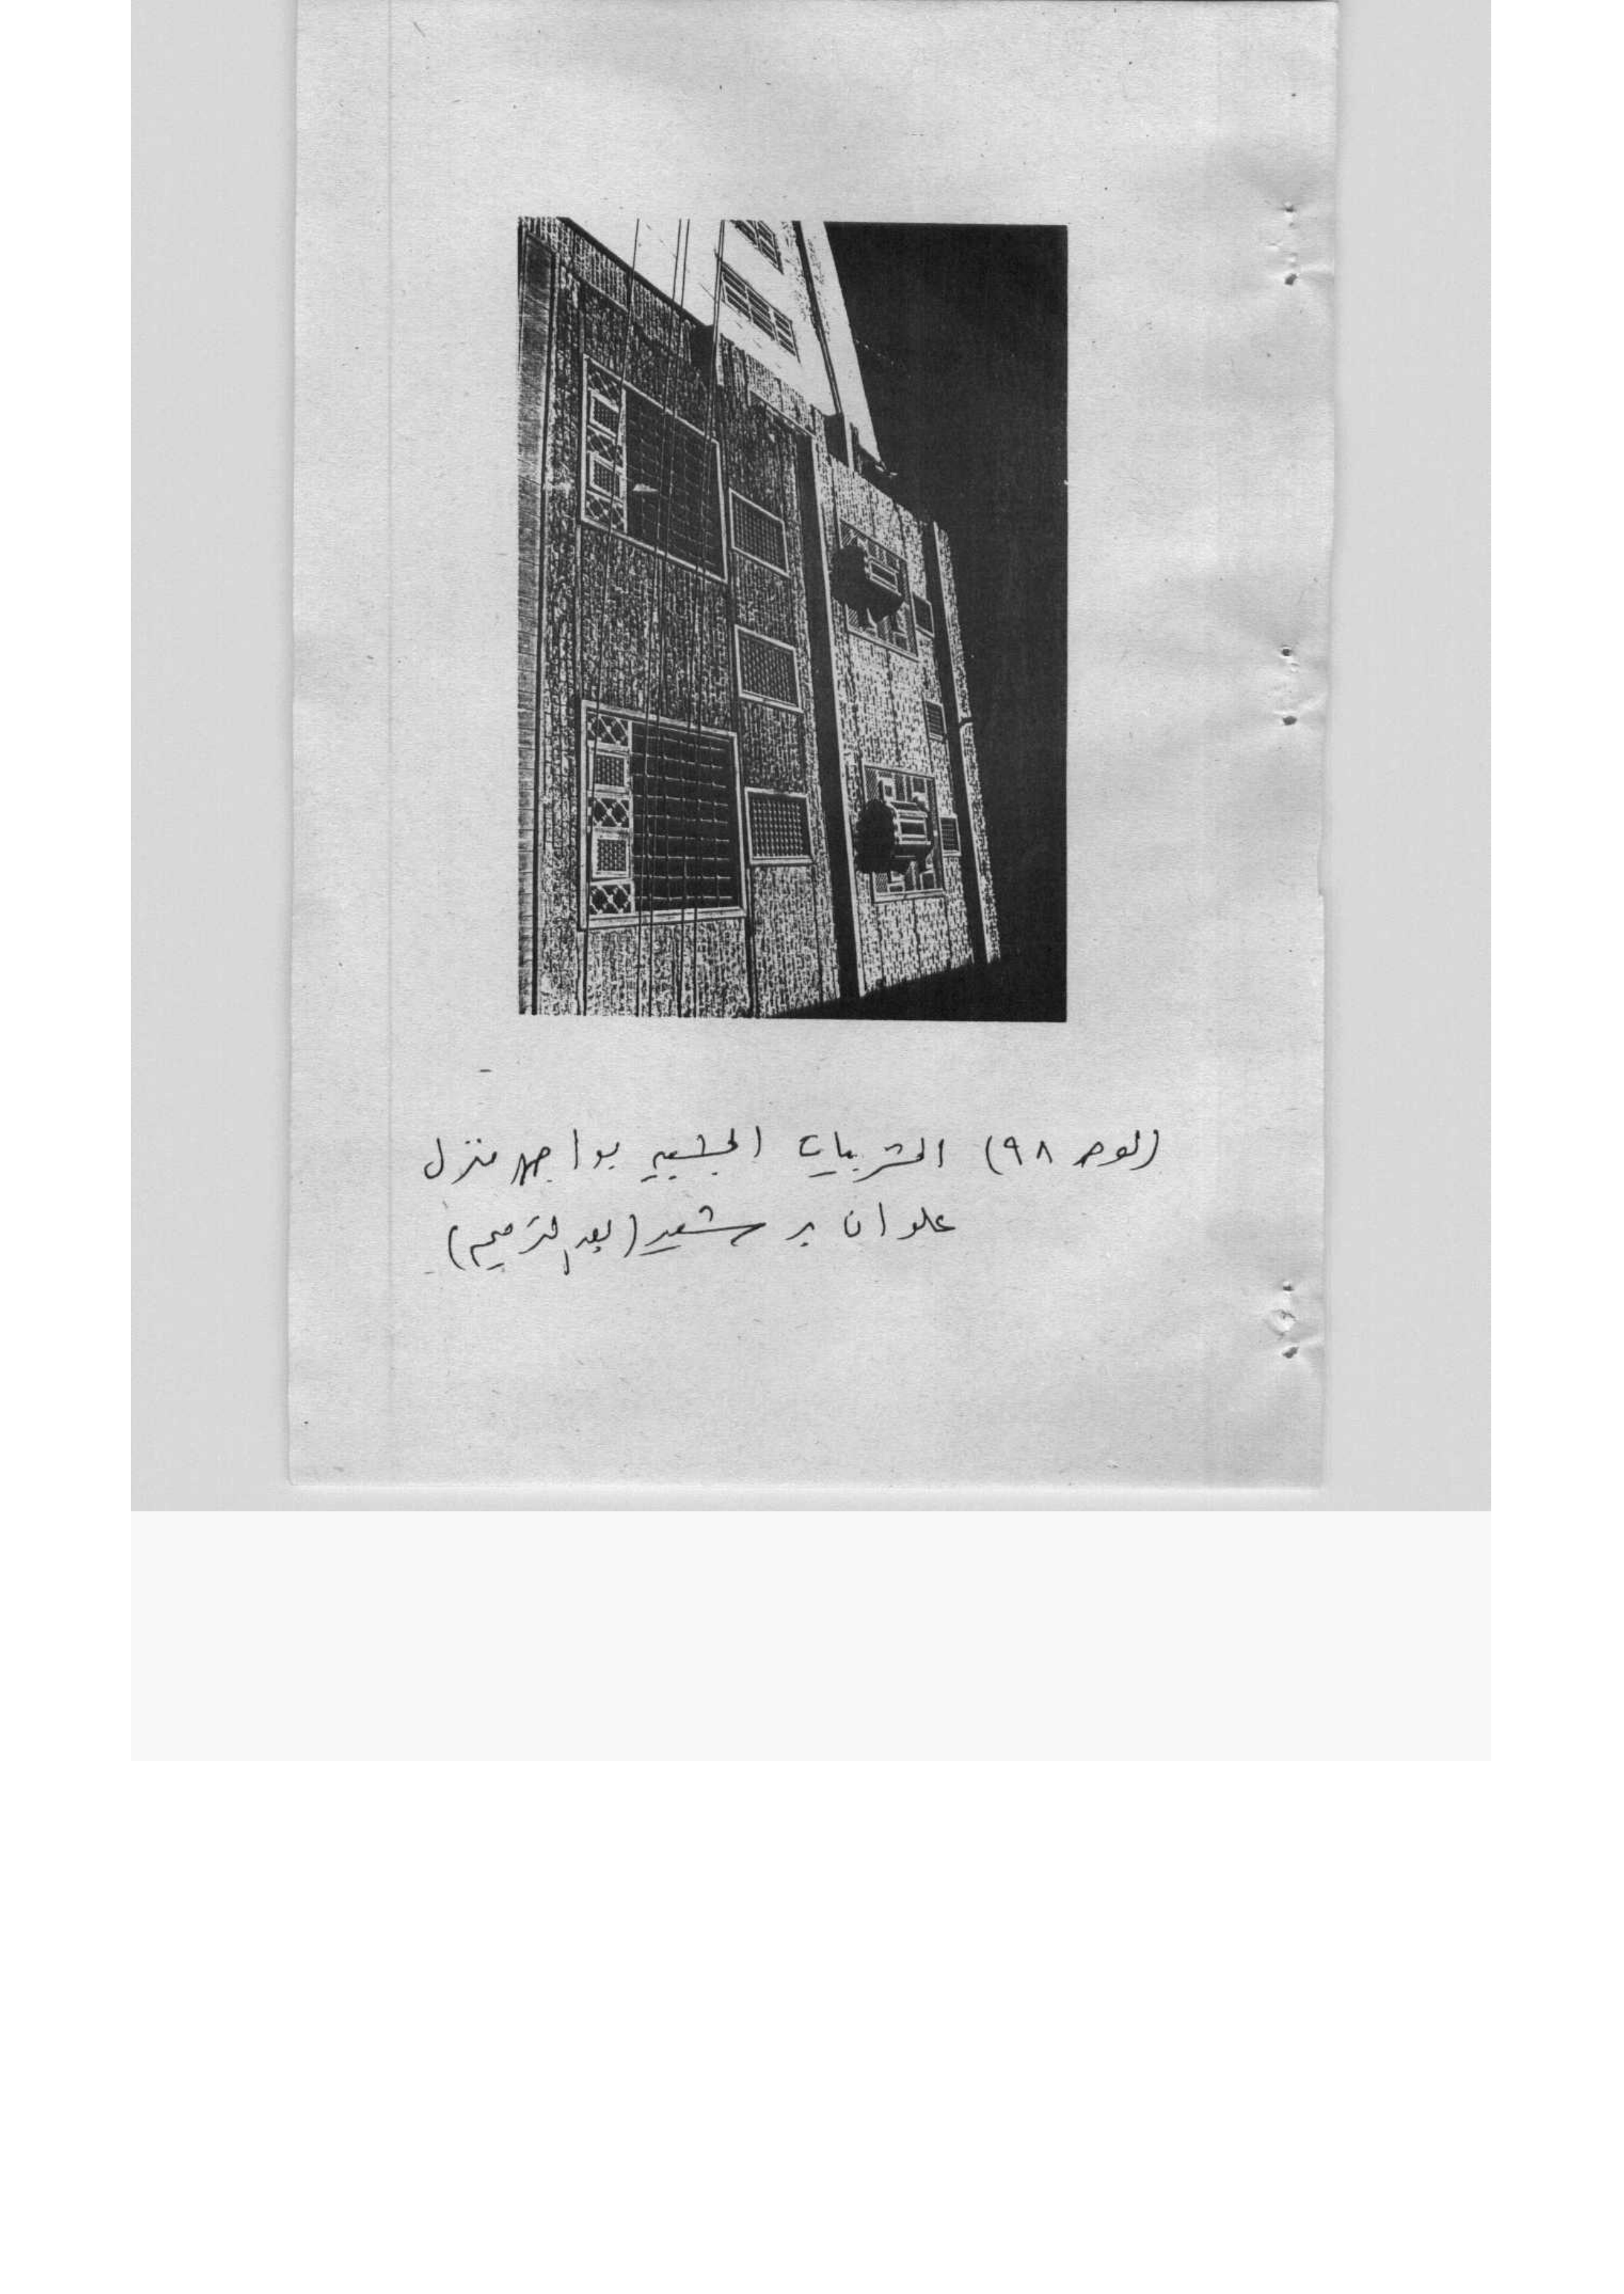 (لوحه ٩٨) المشربيات الخشبيه بواجهه منزل
علوان بر شعير (بعد الترميم)